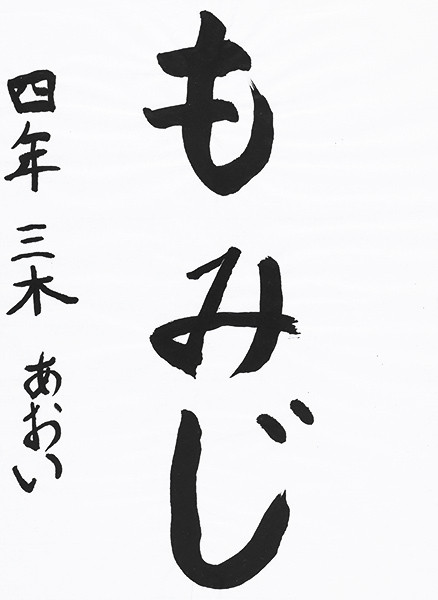 もみじ
四年 三木 あおい